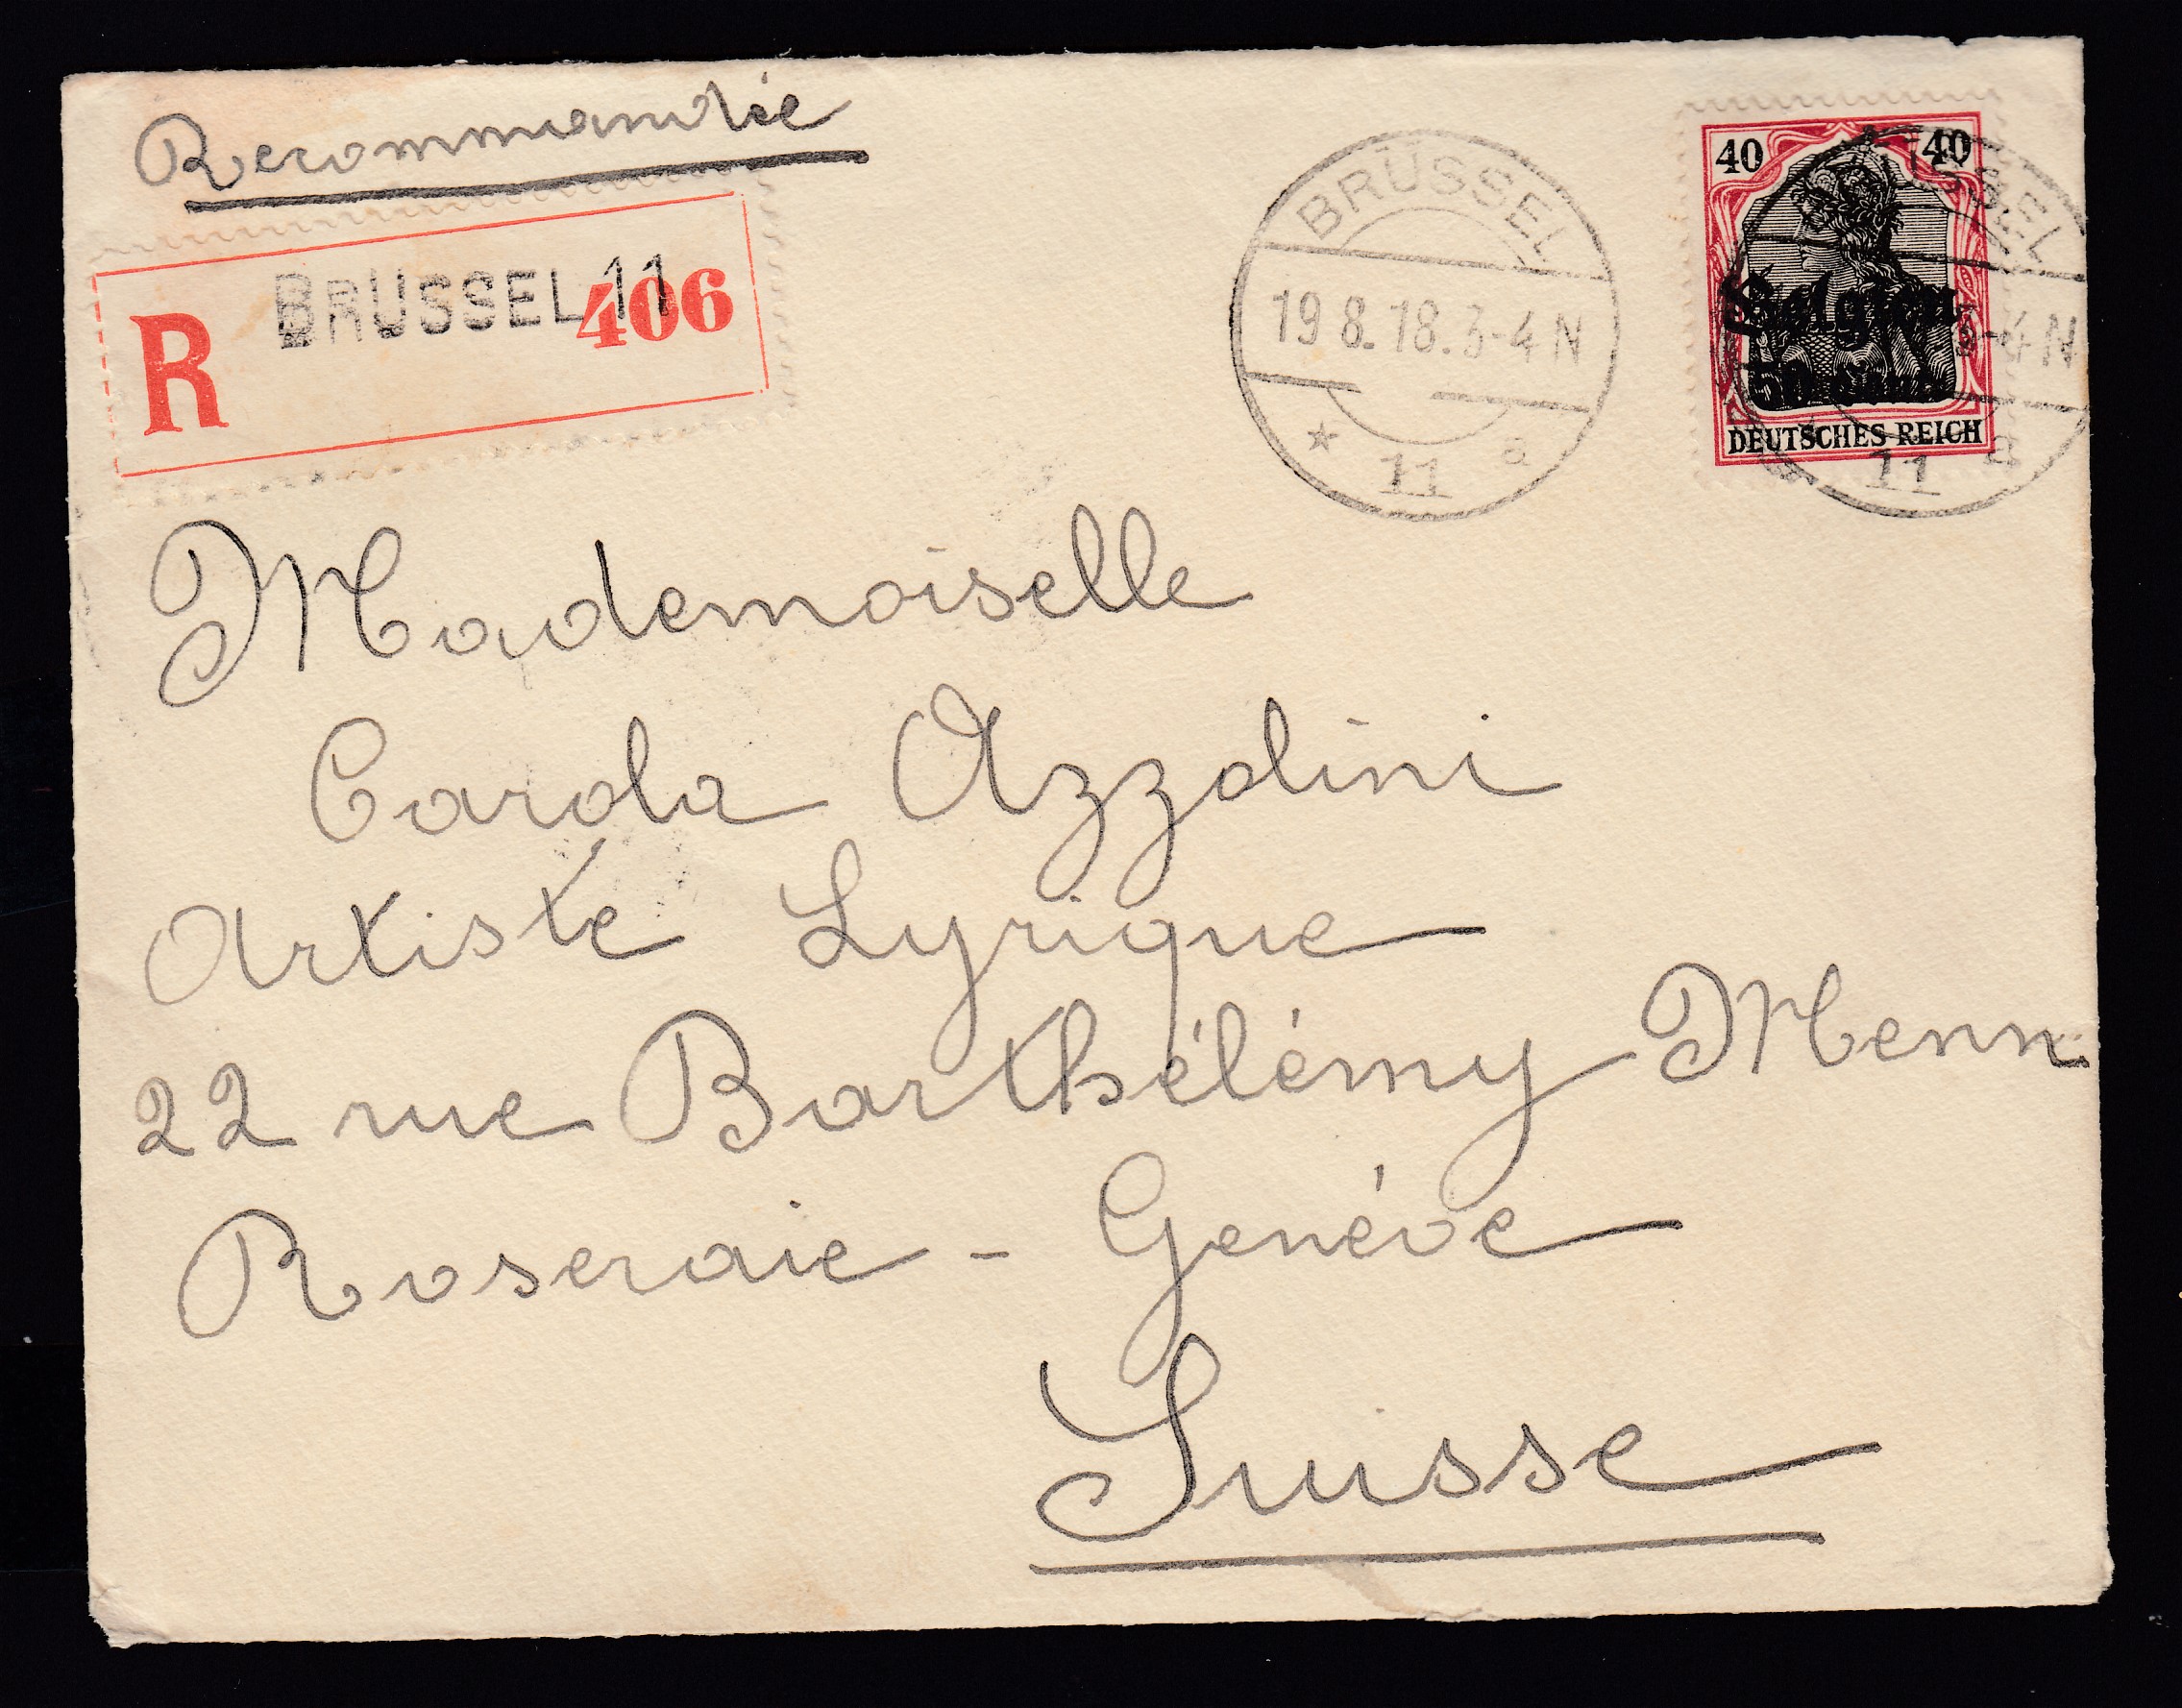 Recommandée
BRÜSSEL 11
R 406
BRÜSSEL
19 8.18.3-4 N
* 11 a
40 40
Belgien
50 Cent.
DEUTSCHES REICH
SSEL
3-4 N
11 a
Mademoiselle
Carola Azzolini
Artiste Lyrique
22 rue Barthélémy Menn
Roseraie - Genéve
Suisse